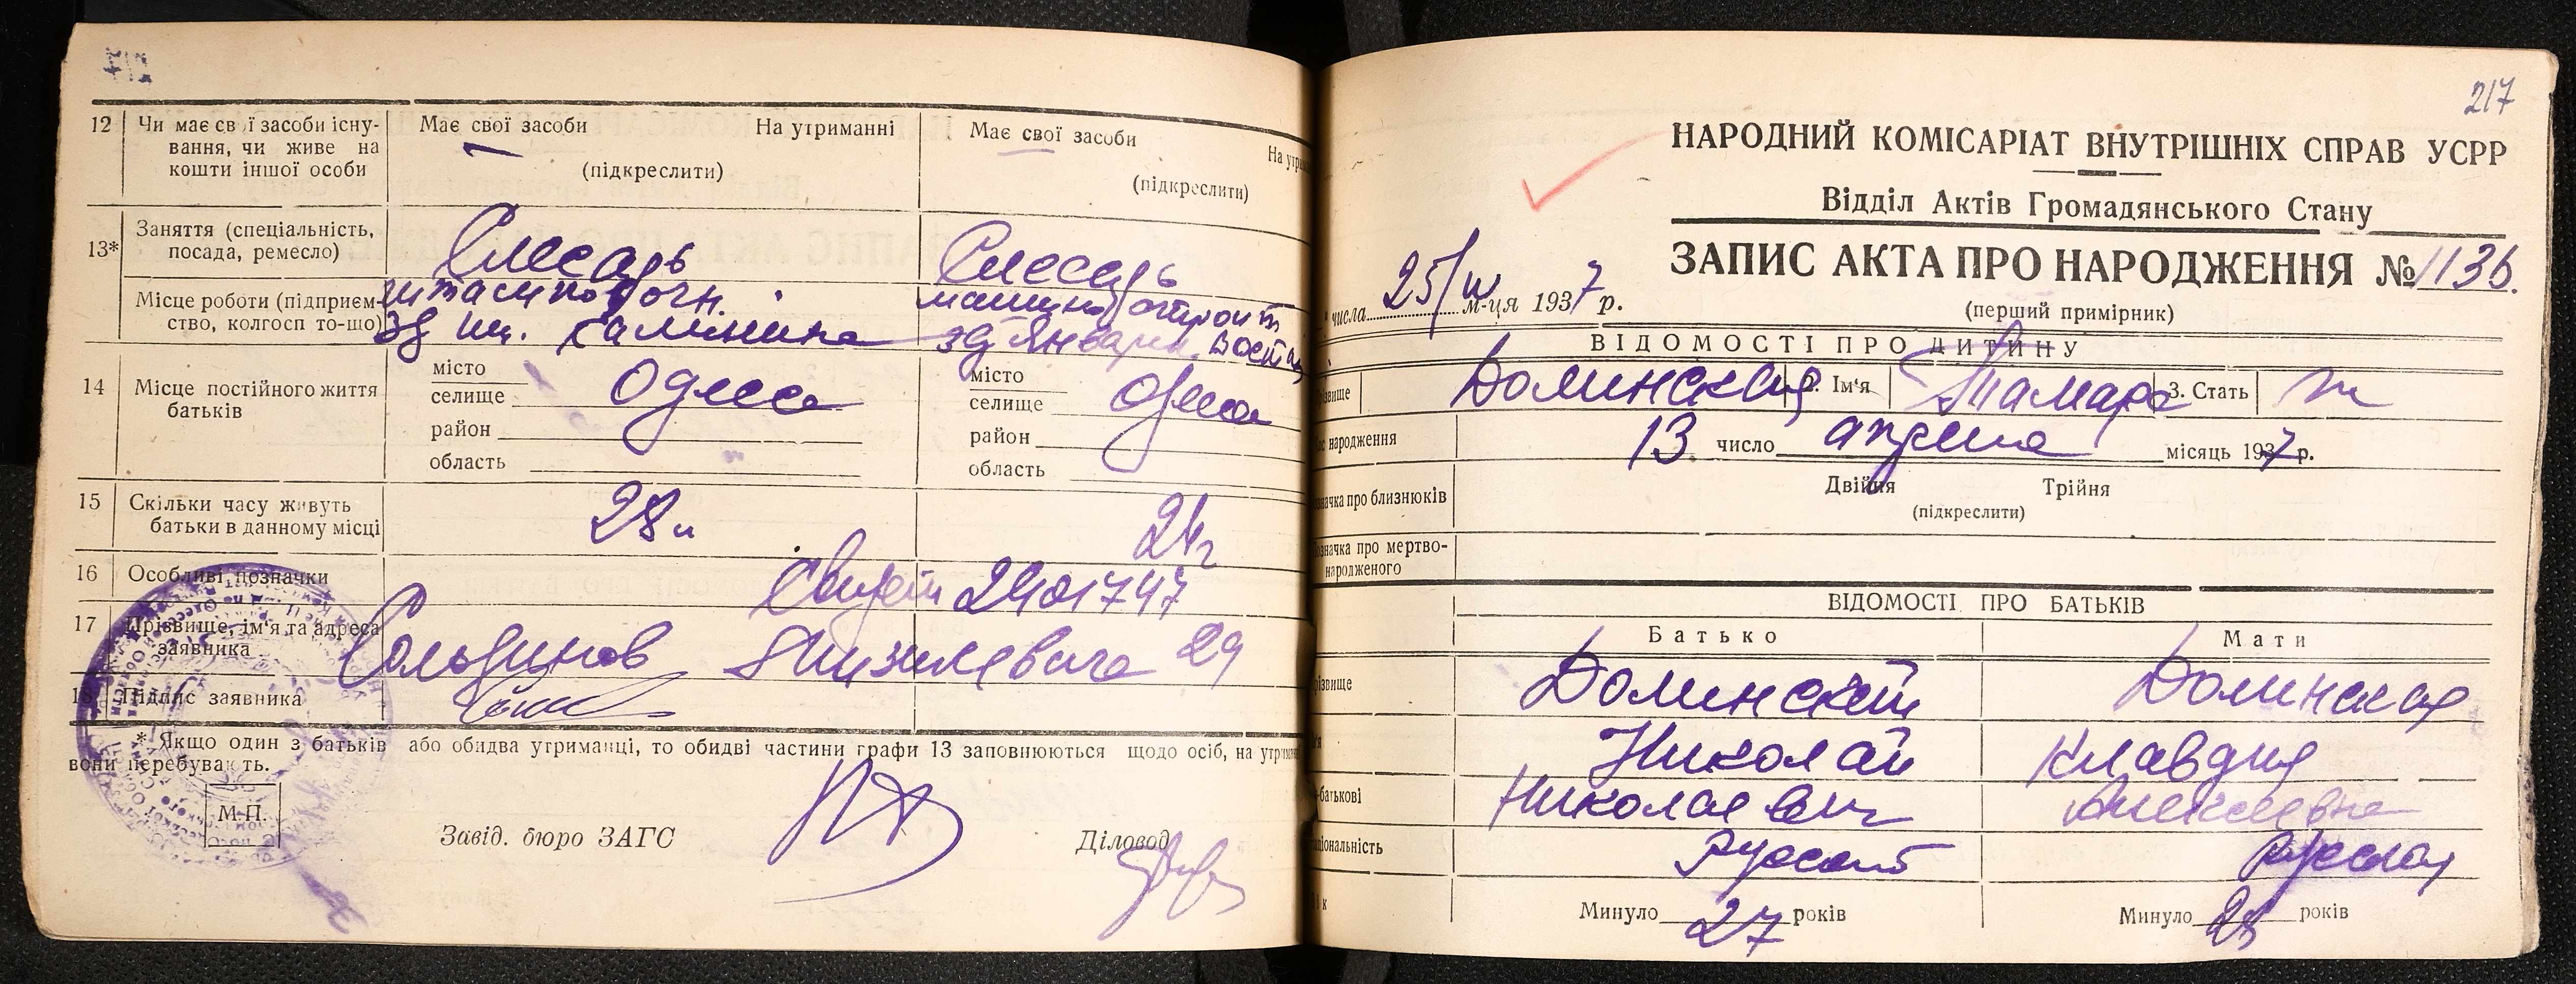 12 Чи має свої засоби існу-
вання, чи живе на
кошти іншої особи
Має свої засоби На утриманні
(підкреслити)
Має свої засоби На утри
(підкреслити)
13* Заняття (спеціальність,
посада, ремесло)
Слесарь
Слесарь
Місце роботи (підприєм-
ство, колгосп то-що)
зд им. Калинина
машиностроит
зд Январск. Восст
14 Місце постійного життя
батьків
місто
селище Одесса
район
область
місто
селище Одесса
район
область
15 Скільки часу живуть
батьки в данному місці
28 л
24 г
16 Особливі позначки
2401747
17 Прізвище, ім'я та адреса
заявника
29
18 Підпис заявника
* Якщо один з батьків або обидва утриманці, то обидві частини графи 13 заповнюються щодо осіб, на утрим
вони перебувають.
М.П.
Завід. бюро ЗАГС
Діловод
217
НАРОДНИЙ КОМІСАРІАТ ВНУТРІШНІХ СПРАВ УСРР
Відділ Актів Громадянського Стану
ЗАПИС АКТА ПРО НАРОДЖЕННЯ № 1136.
(перший примірник)
числа 25/IV м-ця 1937 р.
ВІДОМОСТІ ПРО ДИТИНУ
звище Долинская 2. Ім'я Тамара 3. Стать ж
народження 13. число апреля місяць 1937 р.
значка про близнюків
Двійня Трійня
(підкреслити)
значка про мертво-
народженого
ВІДОМОСТІ ПРО БАТЬКІВ
Батько Мати
різвище Долинский Долинская
Николай Клавдия
батькові Николаевич Алексеевна
ціональність Русский Русская
Минуло 27 років
Минуло років